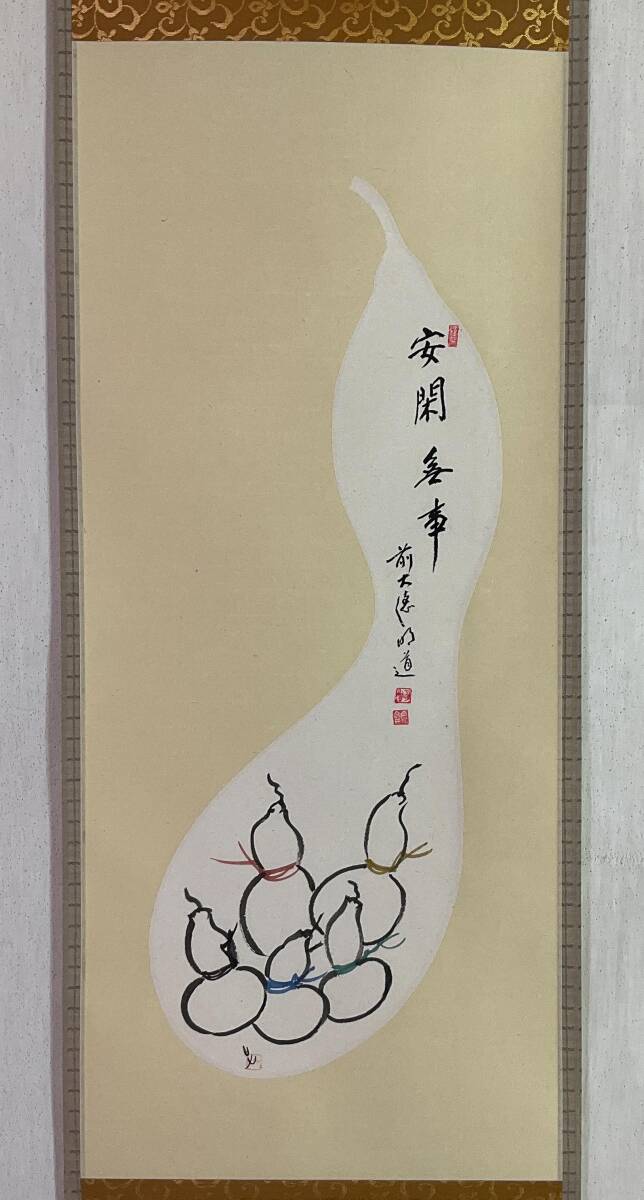 安閑無事
前大徳明道